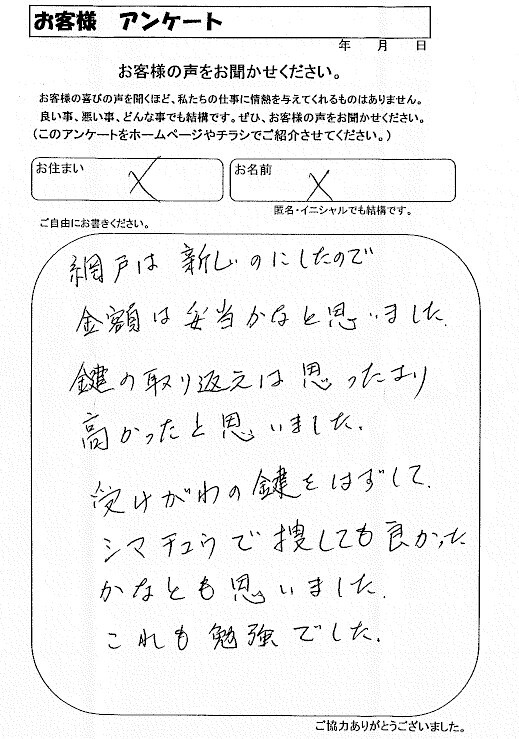 お客様 アンケート
年 月 日
お客様の声をお聞かせください。
お客様の喜びの声を聞くほど、私たちの仕事に情熱を与えてくれるものはありません。
良い事、悪い事、どんな事でも結構です。ぜひ、お客様の声をお聞かせください。
(このアンケートをホームページやチラシでご紹介させてください。)
お住まい X
お名前 X
匿名・イニシャルでも結構です。
ご自由にお書きください。
網戸は新しいのにしたので
金額は妥当かなと思いました.
鍵の取り返えは思ったより
高かったと思いました.
受けがわの鍵をはずして.
シマチュウで捜しても良かった
かなとも思いました.
これも勉強でした.
ご協力ありがとうございました。